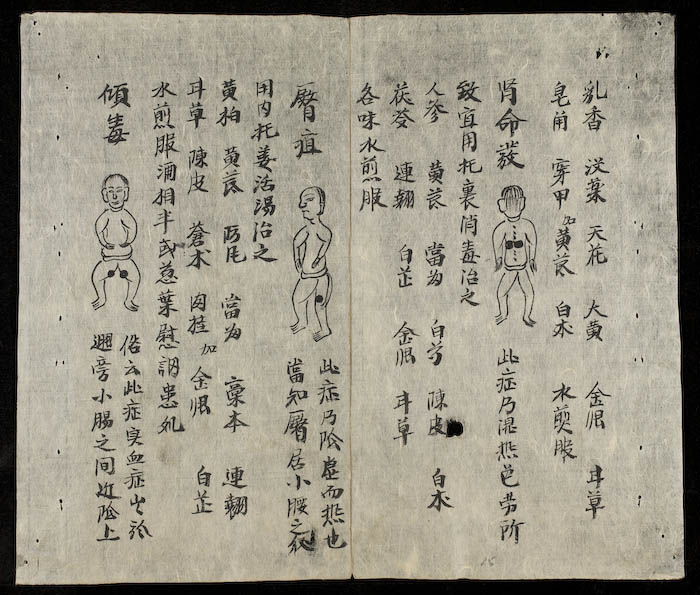 乳香 没藥 天花 大黃 金艮 甘草
皂角 穿甲 加黃芪 白术 水煎服
肾命發 此症乃湿热色劳所
致宜用托裏消毒治之
人參 黃芪 當归 白芍 陳皮 白术
茯苓 連翹 白芷 金艮 甘草
各味水煎服
臀疽
此症乃陰虚而热也
當知臀居小腹之後
用内托羌活湯治之
黃柏 黃芪 防风 當归 藁本 連翹
甘草 陳皮 蒼术 肉桂 加金艮 白芷
水煎服酒相半或葱葉慰患処
傾毒
俗云此症实血症出於
旁小腸之间近陰上